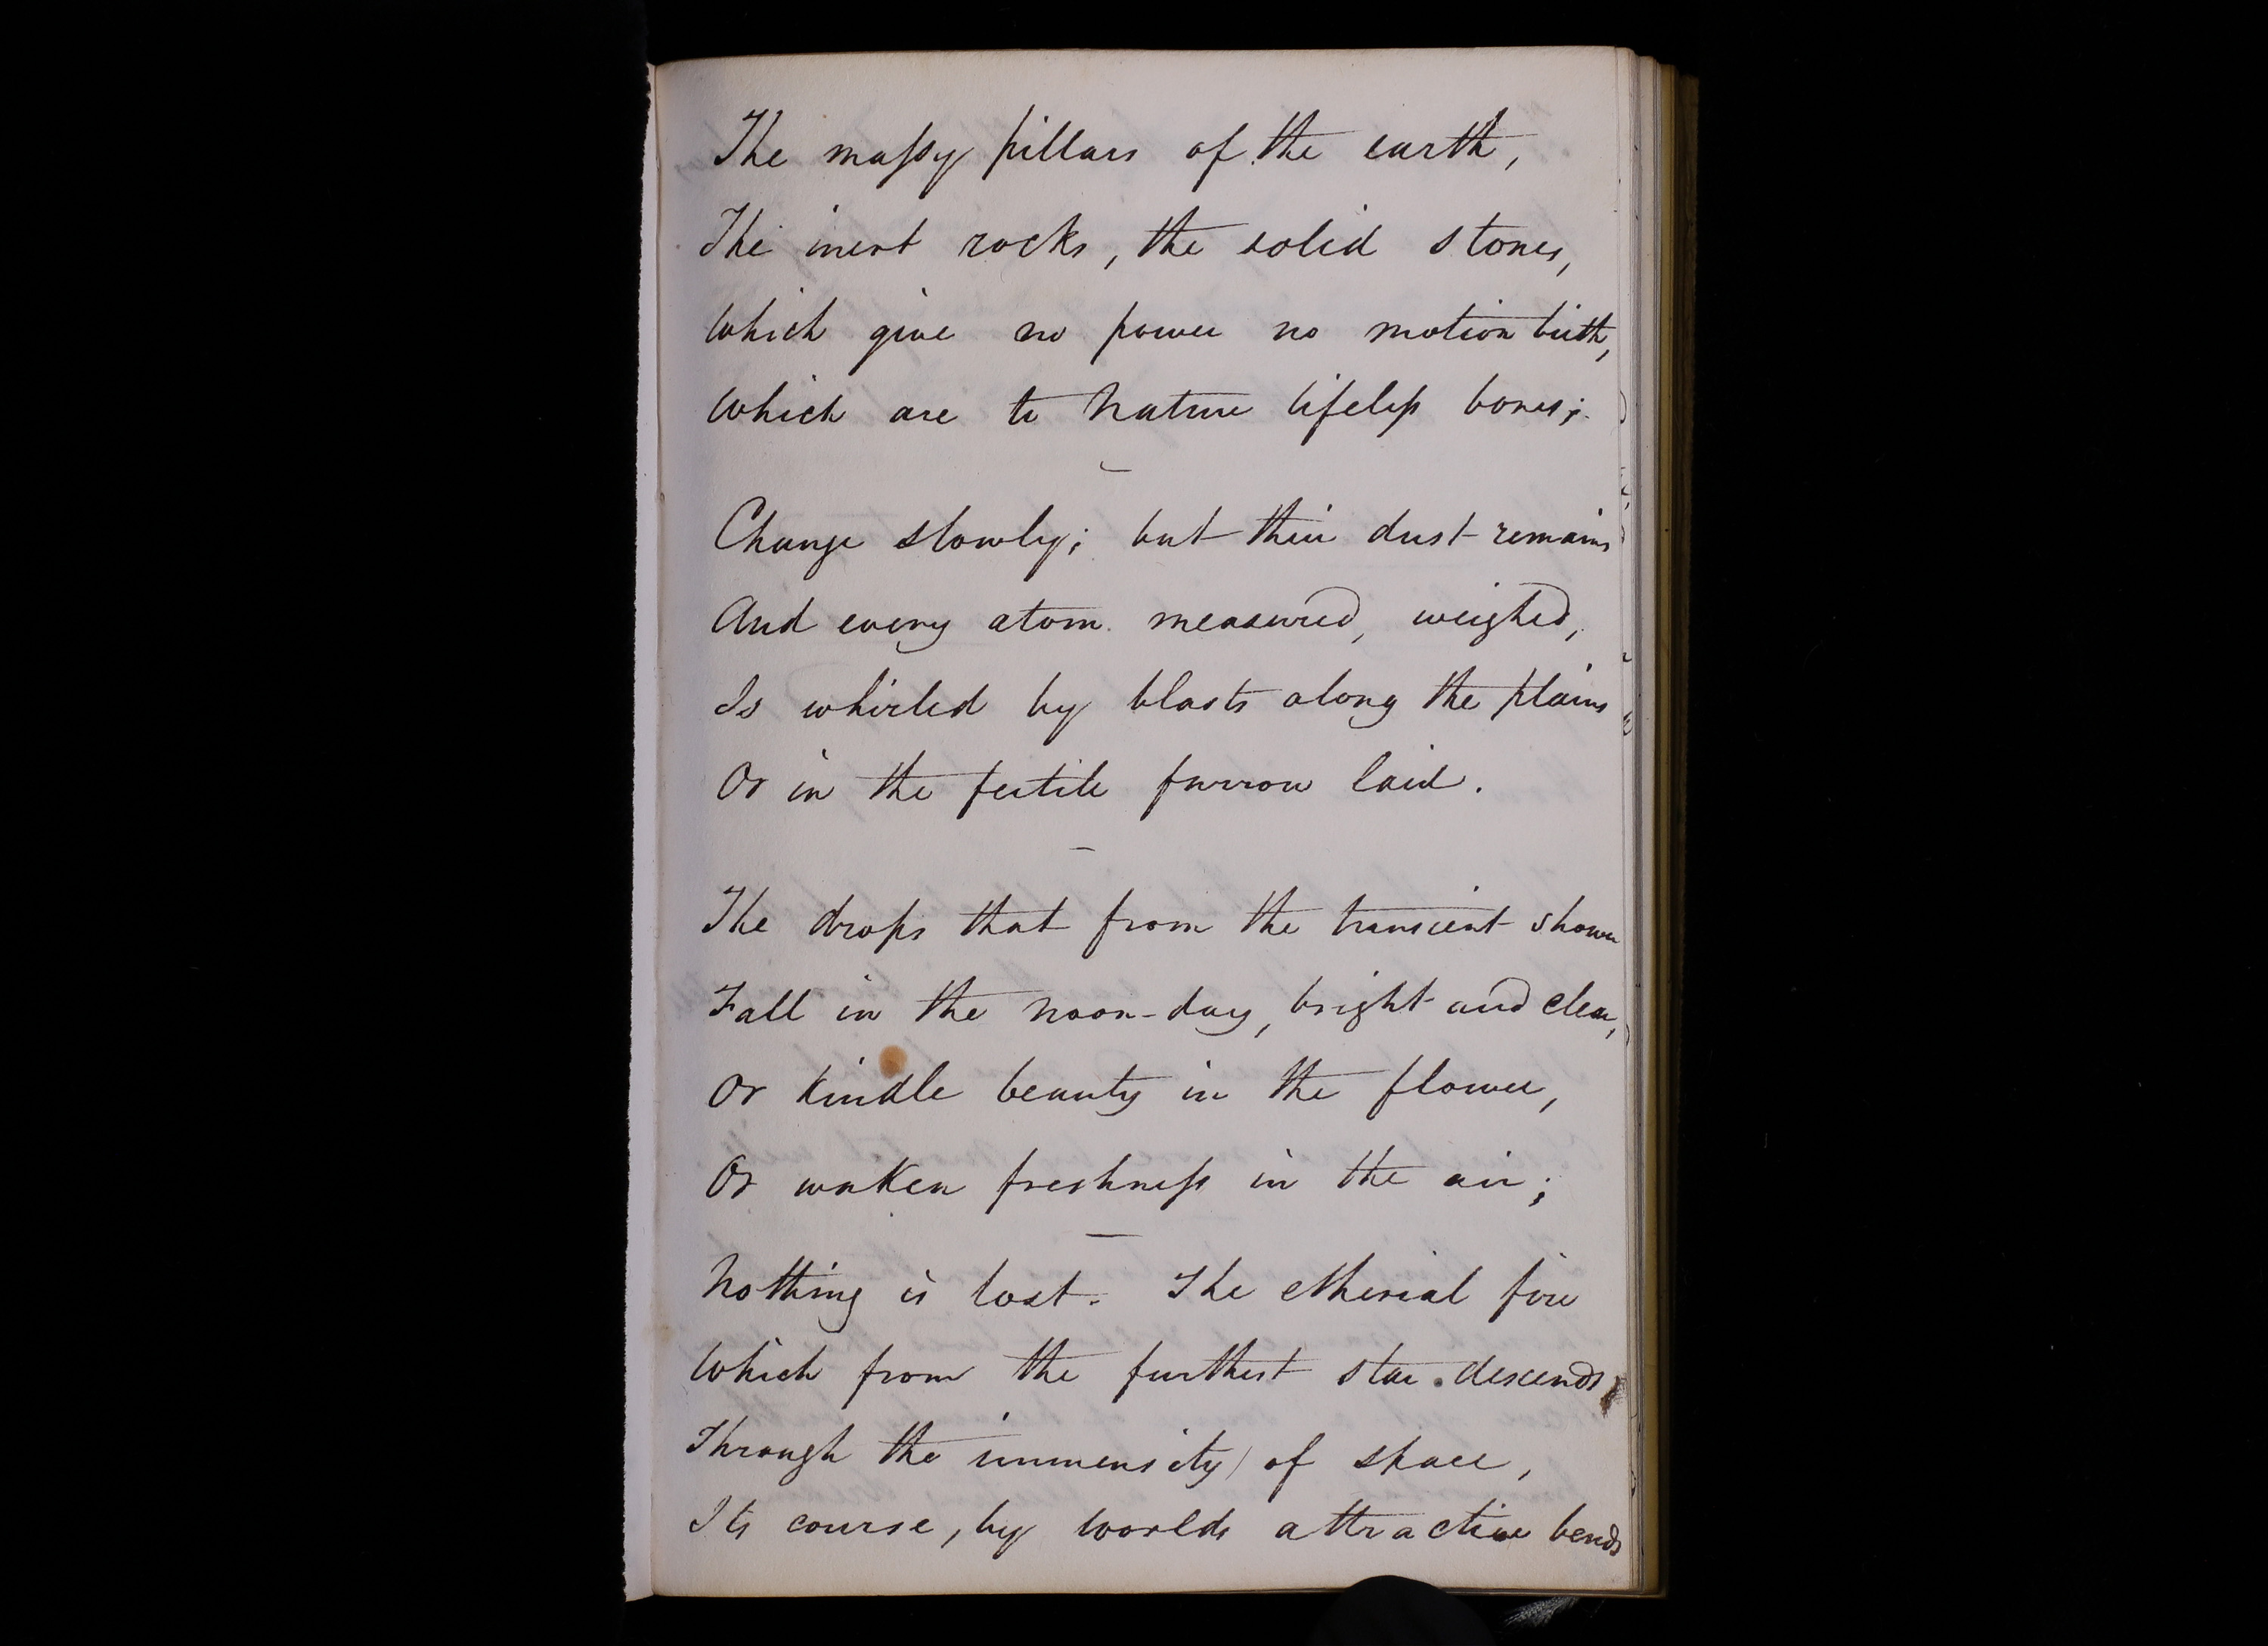 The massy pillars of the earth,
The inert rocks, the solid stones,
Which give no power no motion birth,
Which are to Nature lifeless bones;
Change slowly; but their dust remains
And every atom measured, weighed,
Is whirled by blasts along the plains
Or in the fertile furrow laid.
The drops that from the transient shower
Fall in the noon-day, bright and clear,
Or kindle beauty in the flower,
Or waken freshness in the air;
Nothing is lost. The etherial fire
Which from the furthest star descends
Through the immensity of space,
Its course, by worlds attractive bends